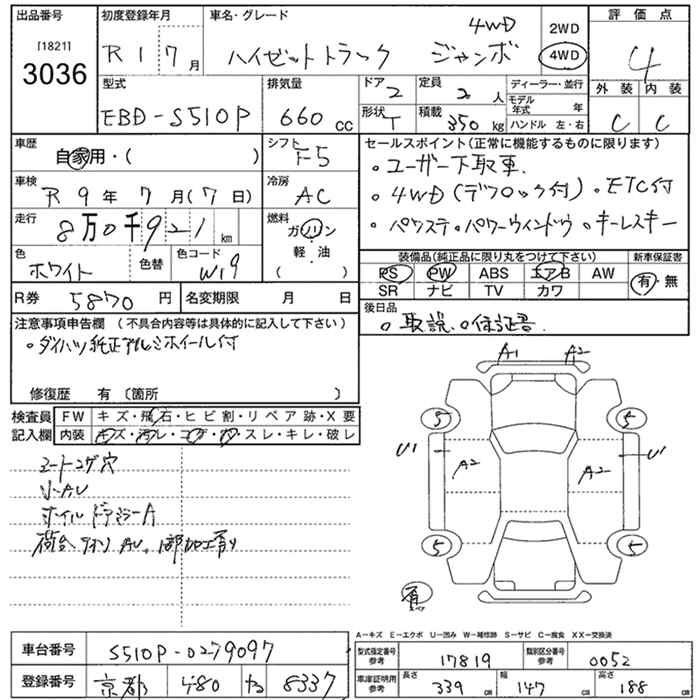 出品番号 初度登録年月 車名・グレード 評価点
[1821]
3036
R1 7月
ハイゼットトラック ジャンボ 4WD
2WD
4WD
4
型式 排気量 ドア 定員 ディーラー・並行 外装 内装
EBD-S510P 660cc 2 2人 モデル年式 年
形状 積載 ハンドル 左・右
T 350kg C C
車歴 シフト セールスポイント(正常に機能するものに限ります)
自家用・( ) F5
・ユーザー下取車
車検 冷房
R9年7月(7日) AC
・4WD(デフロック付)・ETC付
走行 燃料
8万0千921km ガソリン
・パワステ・パワーウィンドウ・キーレスキー
軽油
( )
色 色替 色コード
ホワイト W19
装備品(純正品に限り丸をつけて下さい) 新車保証書
PS PW ABS エアB AW 有・無
SR ナビ TV カワ
R券 5870円 名変期限 月 日
後日品
・取説・保証書
注意事項申告欄(不具合内容等は具体的に記入して下さい)
・ダイハツ純正アルミホイール付
修復歴 有〔箇所 〕
検査員 FW キズ・飛石・ヒビ割・リペア跡・X要
記入欄 内装 キズ・汚レ・コゲ・穴・スレ・キレ・破レ
シートコゲ穴
小AU
ホイル ドアミラーA
荷台 AU
A1 A2
5 5
U1 A2 A2 U1
5 5
有
スペア
A-キズ E-エクボ U-凹み W-補修跡 S-サビ C-腐食 XX-交換済
車台番号 S510P-0279097
型式指定番号 参考 17819 類別区分番号 参考 0052
登録番号 京都 480 8337
車庫証明用 参考 長さ 339cm 幅 147cm 高さ 188cm